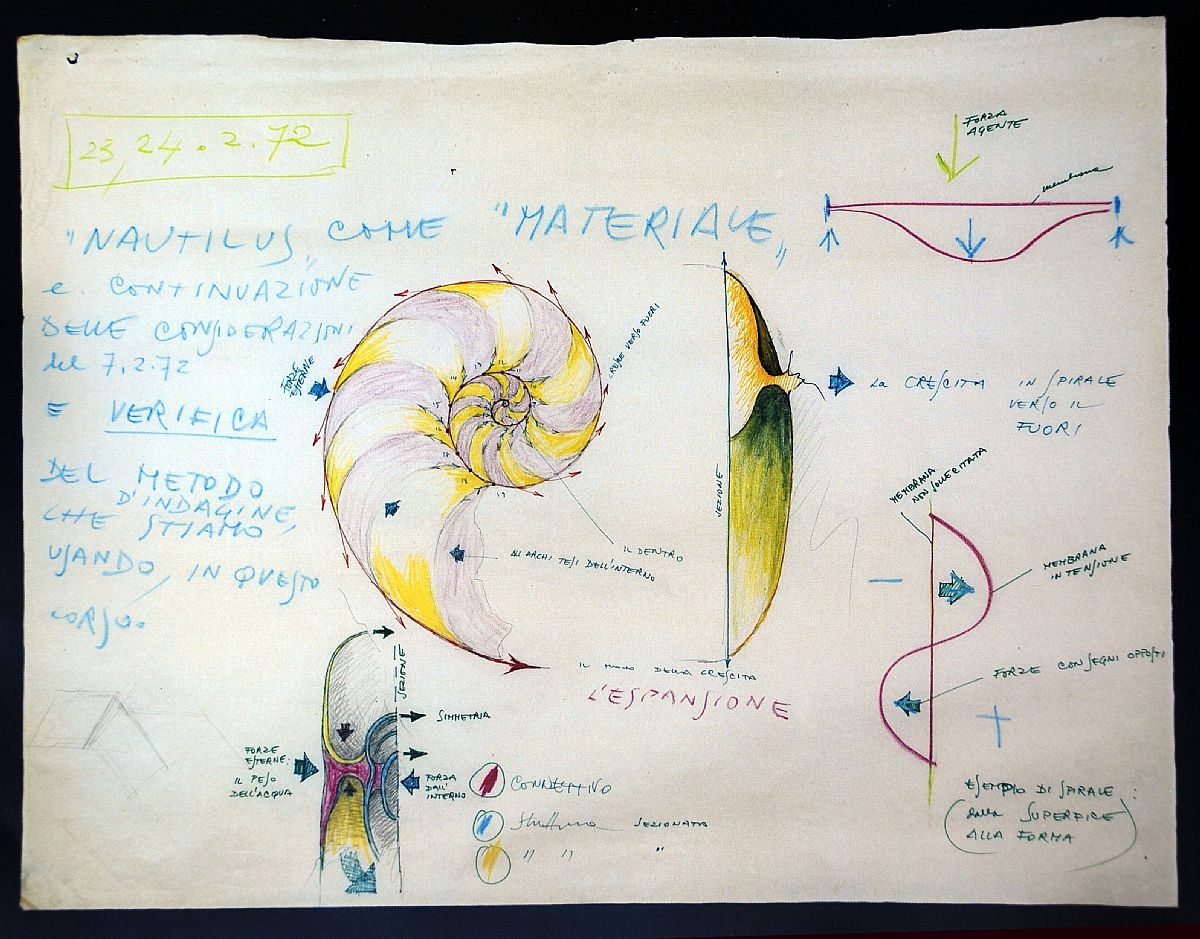 23, 24 . 2. 72
"NAUTILUS" COME "MATERIALE"
e. CONTINUAZIONE
DELLE CONSIDERAZIONI
del 7.2.72
E VERIFICA
DEL METODO
D'INDAGINE,
CHE STIAMO
USANDO, IN QUESTO
CORSO.
FORZE
ESTERNE
VERSO FUORI
GLI ARCHI TESI DELL'INTERNO
IL DENTRO
SEZIONE
IL DELLA CRESCITA
L'ESPANSIONE
FORZA
AGENTE
membrana
LA CRESCITA IN SPIRALE
VERSO IL
FUORI
MEMBRANA
NON SOLLECITATA
MEMBRANA
IN TENSIONE
-
FORZE CON SEGNI OPPOSTI
+
ESEMPIO DI SPIRALE:
(dalla SUPERFICE
ALLA FORMA)
SEZIONE
SIMMETRIA
FORZE
ESTERNE:
IL PESO
DELL'ACQUA
FORZA
DALL'
INTERNO
CONNETTIVO
struttura SEZIONATA
" " "